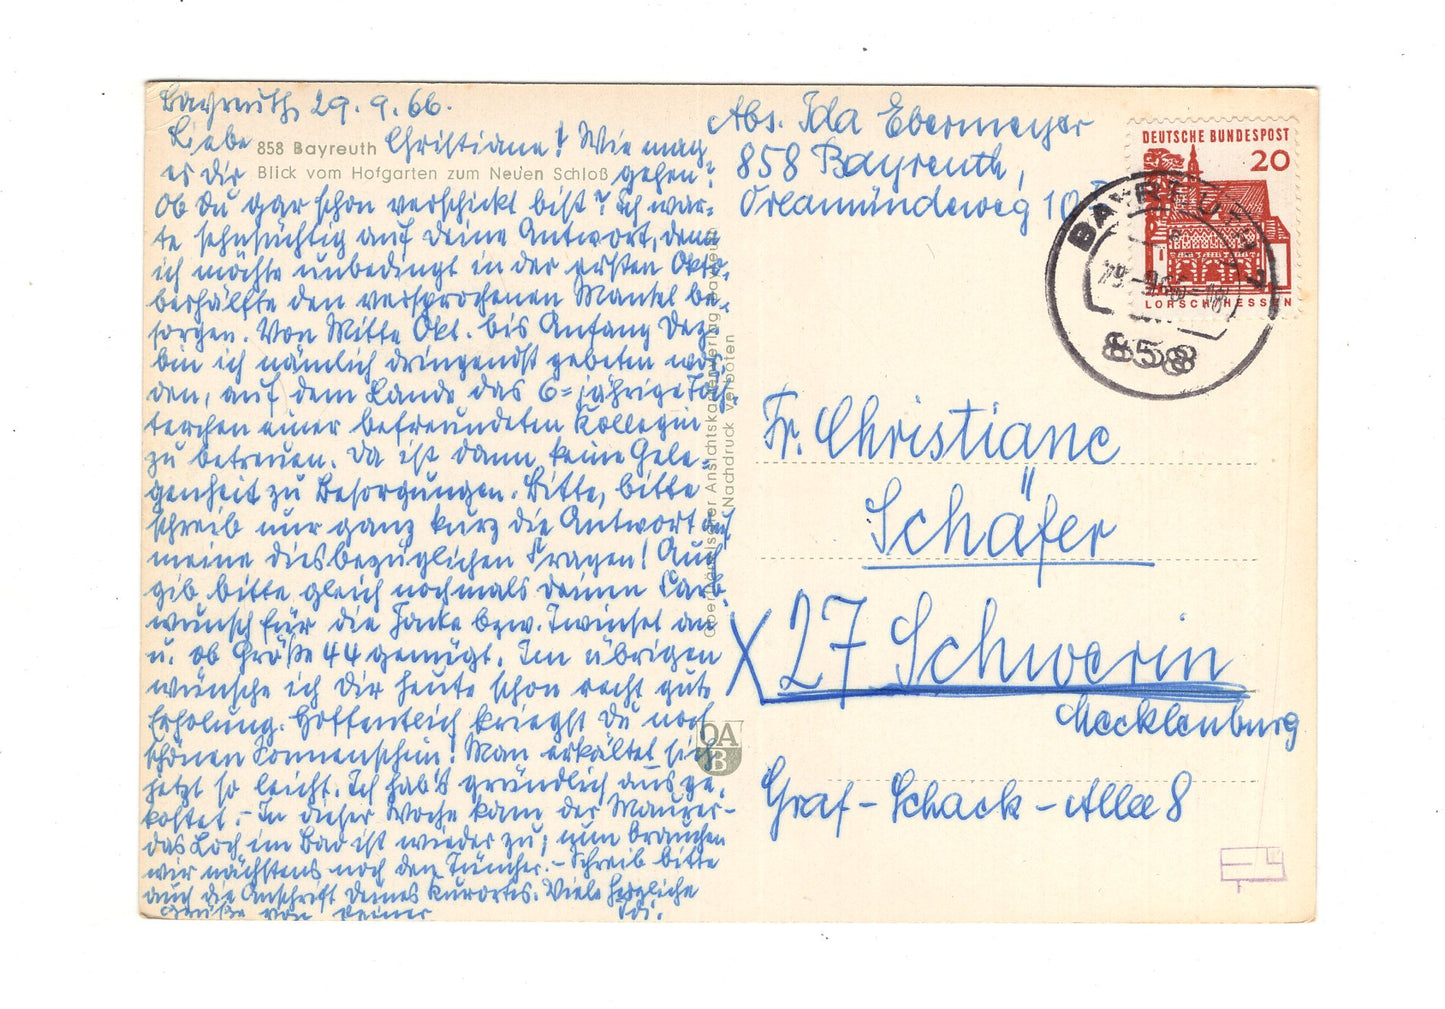 Bayreuth, 29.9.66.
Liebe Christiane! Wie mag
es dir gehen?
Ob du gar schon verschickt bist? Ich war-
te sehnsüchtig auf deine Antwort, denn
ich möchte unbedingt in der ersten Okto-
berhälfte den versprochenen Mantel be-
sorgen. Von Mitte Okt. bis Anfang Dez.
bin ich nämlich dringendst gebeten wor-
den, auf dem Lande das 6=jährige Töch-
terchen einer befreundeten Kollegin
zu betreuen. Da ist dann keine Gele-
genheit zu Besorgungen. Bitte, bitte
schreib nur ganz kurz die Antwort auf
meine diesbezüglichen Fragen! Auch
gib bitte gleich nochmals deinen Farb-
wunsch für die Jacke bzw. Twinset an
u. ob Größe 44 genügt. Im übrigen
wünsche ich dir heute schon recht gute
Erholung. Hoffentlich kriegst du noch
schönen Sonnenschein! Man erkältet sich
jetzt so leicht. Ich hab's gründlich ausge-
kostet. - In dieser Woche kam der Maurer-
das Loch im Bad ist wieder zu; nun brauchen
wir nächstens noch den Tüncher. - Schreib bitte
auch die Anschrift deines Kurortes. Viele herzliche
Grüße von deiner Idi.
858 Bayreuth
Blick vom Hofgarten zum Neuen Schloß
Ansichtskartenverlag Bayreuth
Nachdruck verboten
OA
B
Abs. Ida Ebermeyer
858 Bayreuth,
Orlamündeweg 10
DEUTSCHE BUNDESPOST
20
LORSCH/HESSEN
BAYREUTH 2
29.-9.66-18
858
Fr. Christiane
Schäfer
X 27 Schwerin
Mecklenburg
Graf-Schack-Allee 8